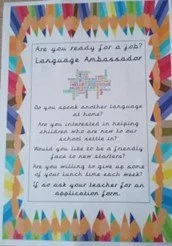 Are you ready for a job?
Language Ambassador
Do you speak another language
at home?
Are you interested in helping
children who are new to our
school settle in?
Would you like to be a friendly
face to new starters?
Are you willing to give up some
of your lunch time each week?
If so ask your teacher for an
application form.